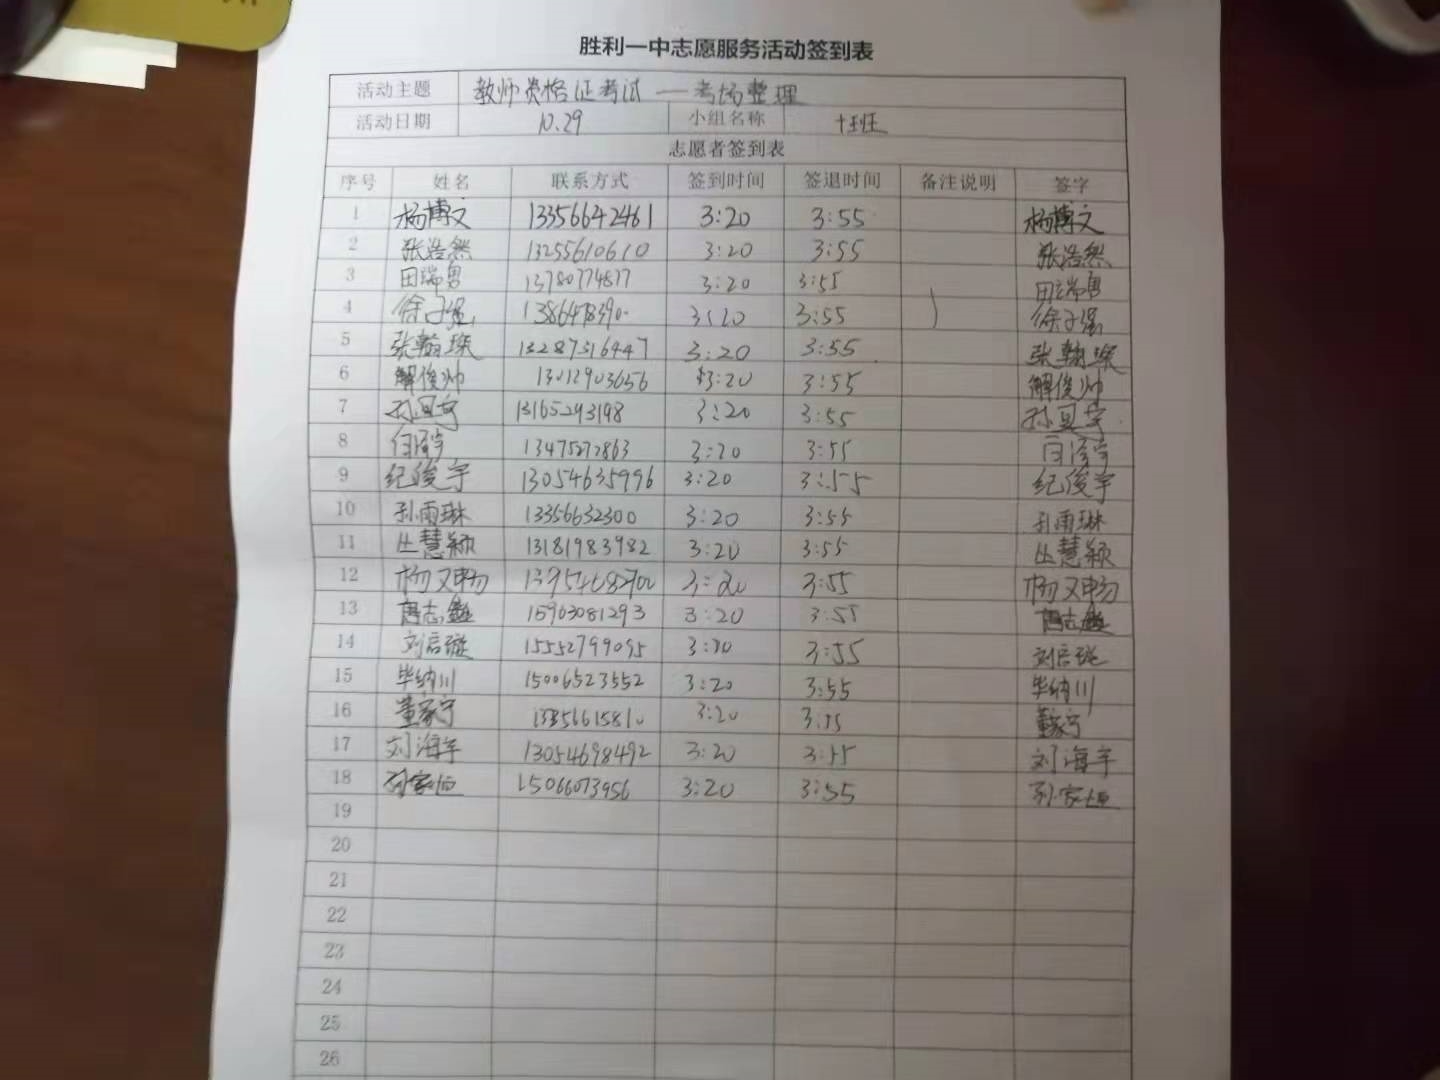 胜利一中志愿服务活动签到表
活动主题 教师资格证考试——考场整理
活动日期 10.29 小组名称 十班
志愿者签到表
序号 姓名 联系方式 签到时间 签退时间 备注说明 签字
1 杨博文 13356642461 3:20 3:55 杨博文
2 张浩然 13255610610 3:20 3:55 张浩然
3 田瑞勇 13780774877 3:20 3:55 田瑞勇
4 徐子强 3:20 3:55 徐子强
5 张翰琛 13287316447 3:20 3:55 张翰琛
6 解俊帅 13012903656 3:20 3:55 解俊帅
7 13165293198 3:20 3:55
8 白泽宇 13475272863 3:20 3:55 白泽宇
9 纪俊宇 13054635996 3:20 3:55 纪俊宇
10 孙雨琳 13356632300 3:20 3:55 孙雨琳
11 丛慧颖 13181983982 3:20 3:55 丛慧颖
12 杨又畅 13954682700 3:20 3:55 杨又畅
13 3:20 3:55
14 15552799095 3:20 3:55
15 毕纳川 15006523552 3:20 3:55 毕纳川
16 董家宁 13356615810 3:20 3:55 董家宁
17 刘海宇 13054698492 3:20 3:55 刘海宇
18 孙家恒 15066073956 3:20 3:55 孙家恒
19
20
21
22
23
24
25
26